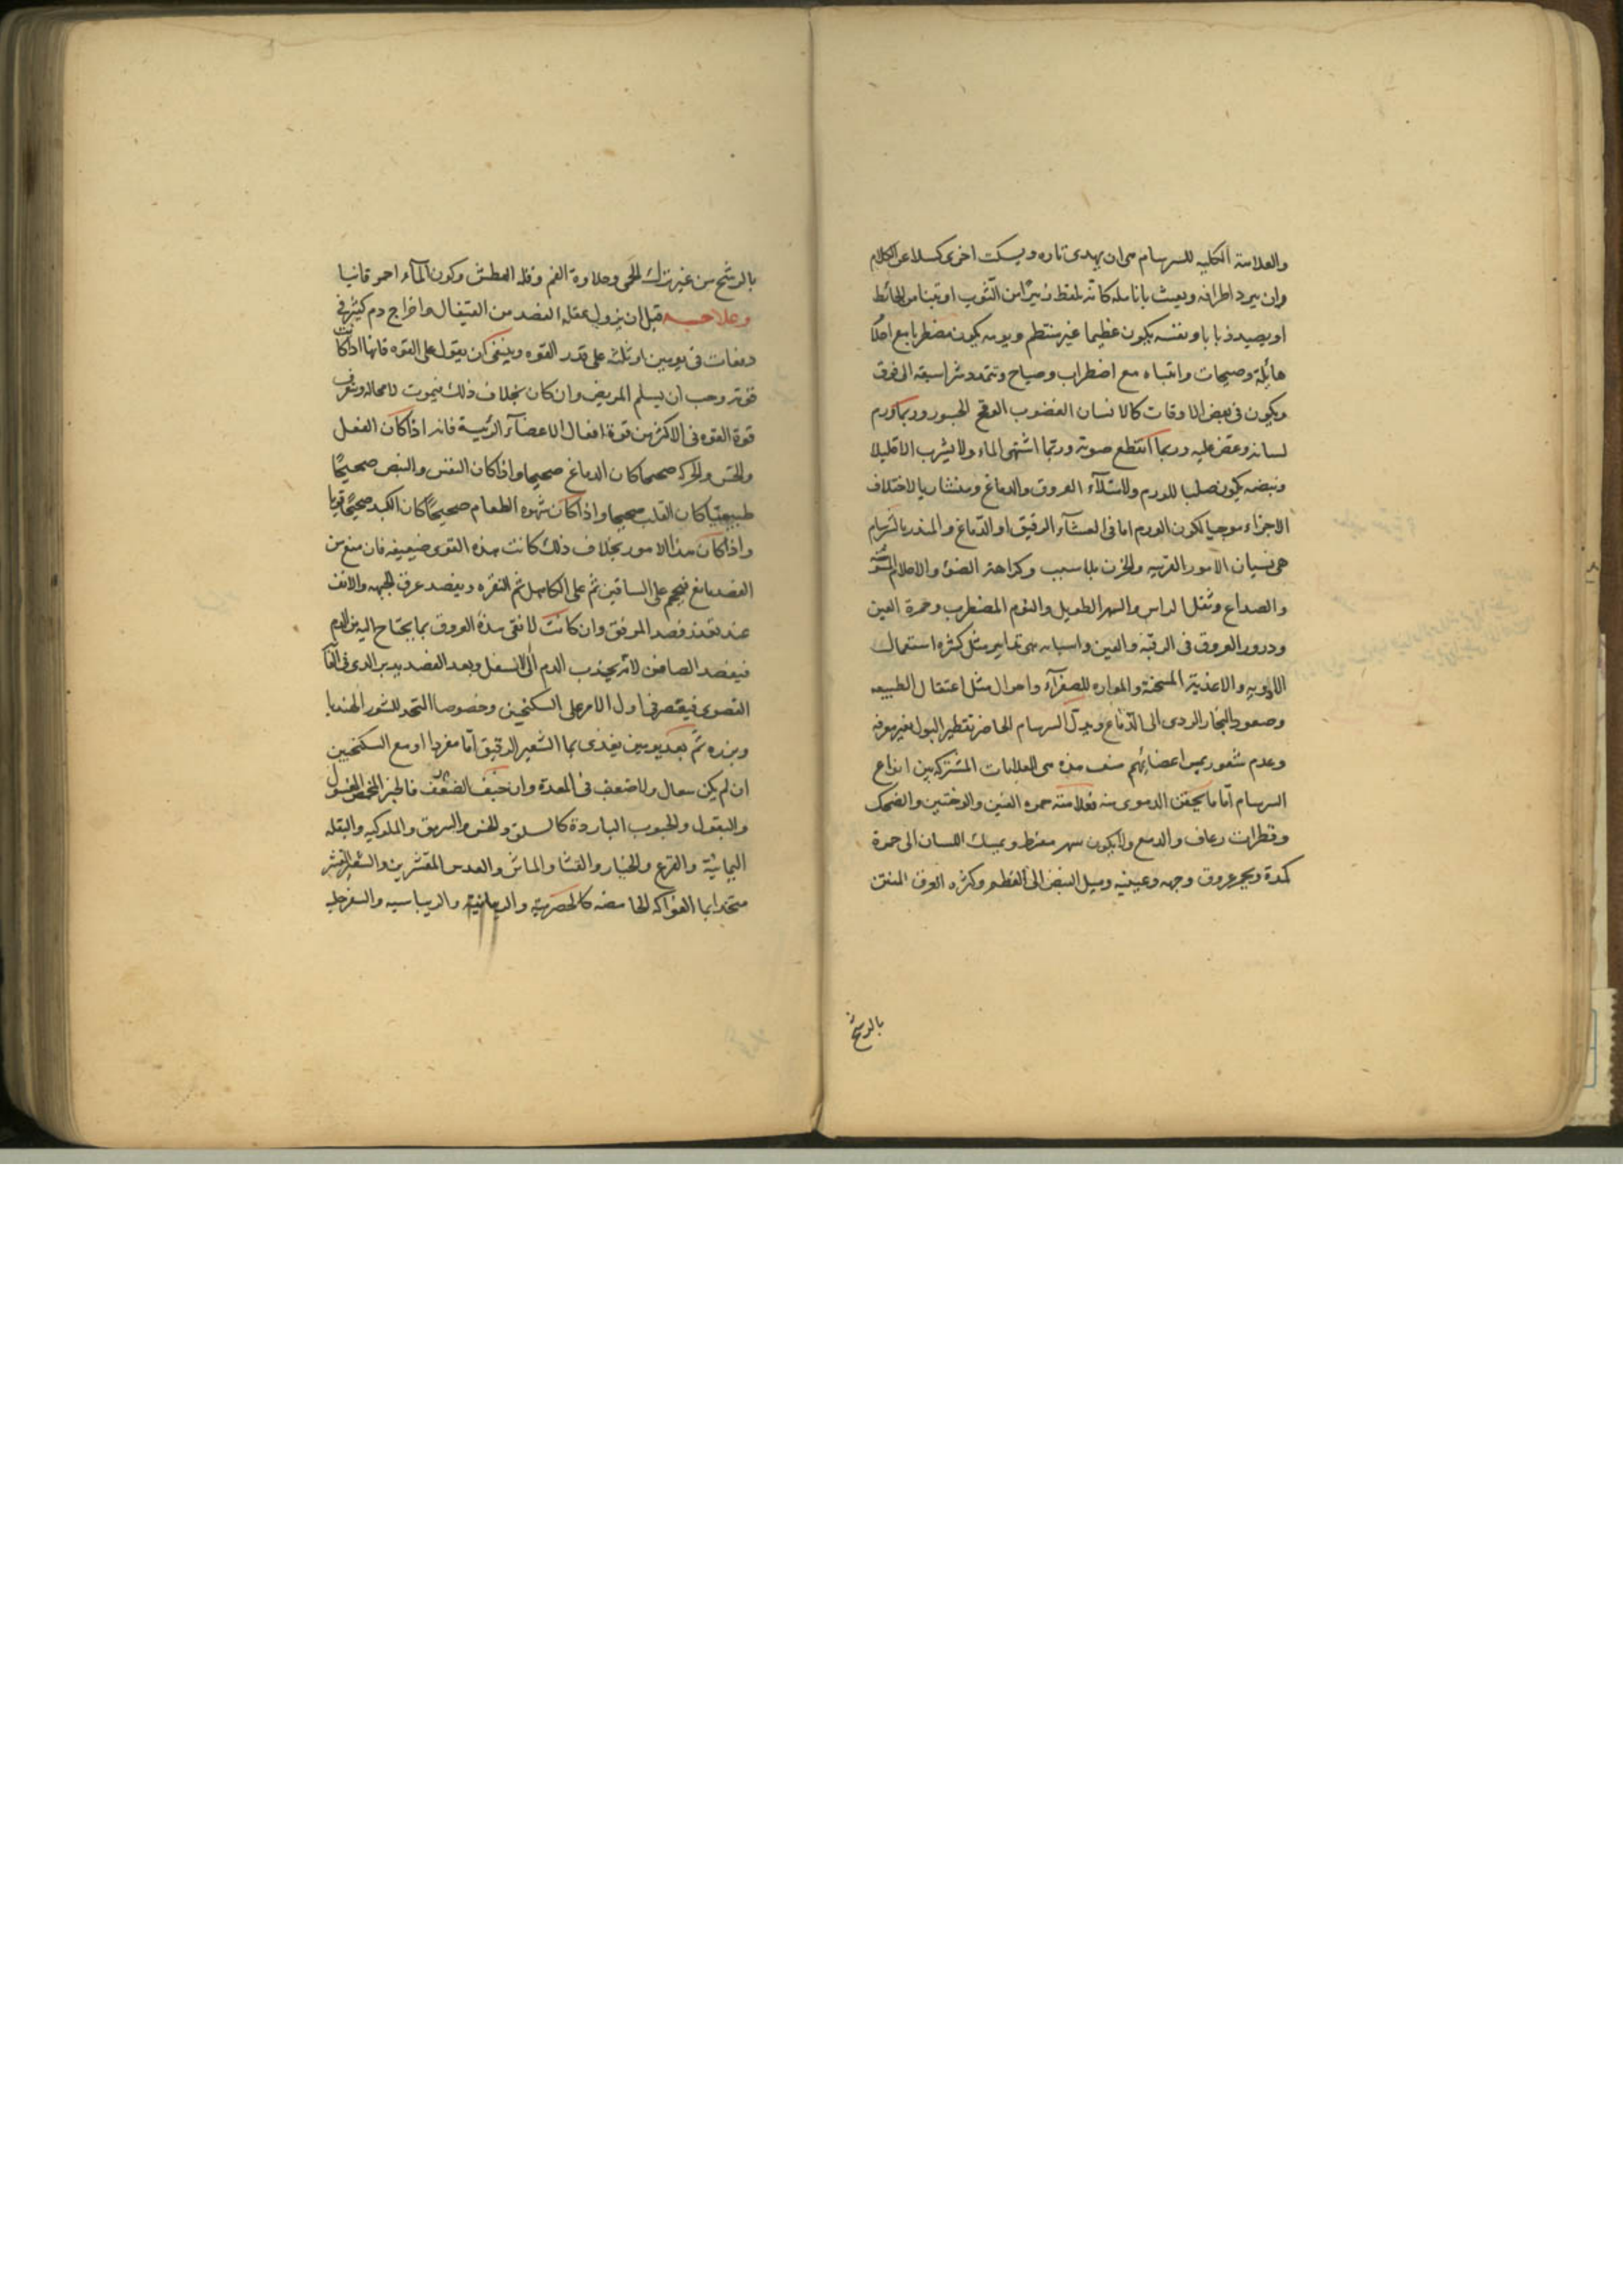 والعلامة الكليه للسرسام هى ان يهدى تاره ويسكت اخرى كسلا عن الكلام
وان يبرد اطرافه ويعبث بانامله كانه يلقط زئبرا من الثوب او تبنا من الحائط
او يصيد ذبابا ونفسه يكون عظيما غير منتظم ونومه يكون مضطربا مع احلام
هائلة وصيحات وانتباه مع اضطراب وصياح وتتمدد شراسيفه الى فوق
ويكون فى بعض الاوقات كالانسان الغضوب الوقح الجسور وربما ورم
لسانه وعض عليه وربما انقطع صوته وربما اشتهى الماء ولا يشرب الا قليلا
ونبضه يكون صلبا للورم ولامتلآء العروق والدماغ ومنشاريا لاختلاف
الاجزاء موجيا لكون الورم اما فى الغشآء الرقيق او الدماغ والمنذر بالسرسام
هى نسيان الامور القريبه والحزن بلا سبب وكراهة الضوء والاحلام المشوشة
والصداع وثقل الراس والسهر الطويل والنوم المضطرب وحمرة العين
ودرور العروق فى الرقبة والعين واسبابه هى تدابير مثل كثره استعمال
الادويه والاغذية المسخنة والمولده للصفرآء واحوال مثل اعتقال الطبيعه
وصعود البخار الردى الى الدماغ ويدل السرسام الحاضر تقطير البول بغير معرفه
وعدم شعور بمس اعضائهم بعنف هذه هى العلامات المشتركه بين انواع
السرسام اما ما يختص الدموى منه فعلامته حمره العين والوجنتين والضحك
وقطرات رعاف والدمع ولا يكون سهر مفرط ويميل اللسان الى حمرة
كمدة ويحمر عروق وجهه وعينيه وميل النبض الى العظم وكثره العرق المنتن
بالرشح
بالرشح من غير ترك الحمى وحلاوة الفم وقله العطش وكون المآء احمر قانيا
وعلاجـــه قبل ان يزول عقله الفصد من القيفال واخراج دم كثير فى
دفعات فى يومين او ثلثه على قدر القوه وينبغى ان يعول على القوه فانها اذا كانت
قوية وجب ان يسلم المريض وان كان بخلاف ذلك يموت لا محاله وتعرف
قوة القوه فى الاكثر من قوة افعال الاعضآء الرئيسة فانه اذا كان العقل
والحس والحركه صحيحا كان الدماغ صحيحا واذا كان النفس والنبض صحيحًا
طبيعيا كان القلب صحيحا واذا كان شهوه الطعام صحيحًا كان الكبد صحيحًا قويا
واذا كان هذا الامور بخلاف ذلك كانت هذه القوى ضعيفه فان منع من
الفصد مانع فيحجم على الساقين ثم على الكاهل ثم النقره ويفصد عرق الجبهه والانف
عند تعذر فصد المرفق وان كانت لا تفى هذه العروق بما يحتاج اليه من الدم
فيفصد الصافن لانه يجذب الدم الى الاسفل وبعد الفصد يدبر الذى فى الغا
القصوى فيقتصر فى اول الامر على السكنجبين وخصوصا المتخذ للشور الهندبا
وبزره ثم بعد يومين يغذى بما الشعير الرقيق اما مفردا او مع السكنجبين
ان لم يكن سعال ولا ضعف فى المعدة وان خيف الضعف فالخبز المخمر المغسول
والبقول والحبوب الباردة كالسلق والخس والسرمق والملوكيه والبقله
اليمانية والقرع والخيار والقثا والماش والعدس المقشرين والشعير المقشر
متخدا بما الفواكه الحامضه كالحصرمية والرمانية والريباسيه والسفرجليه